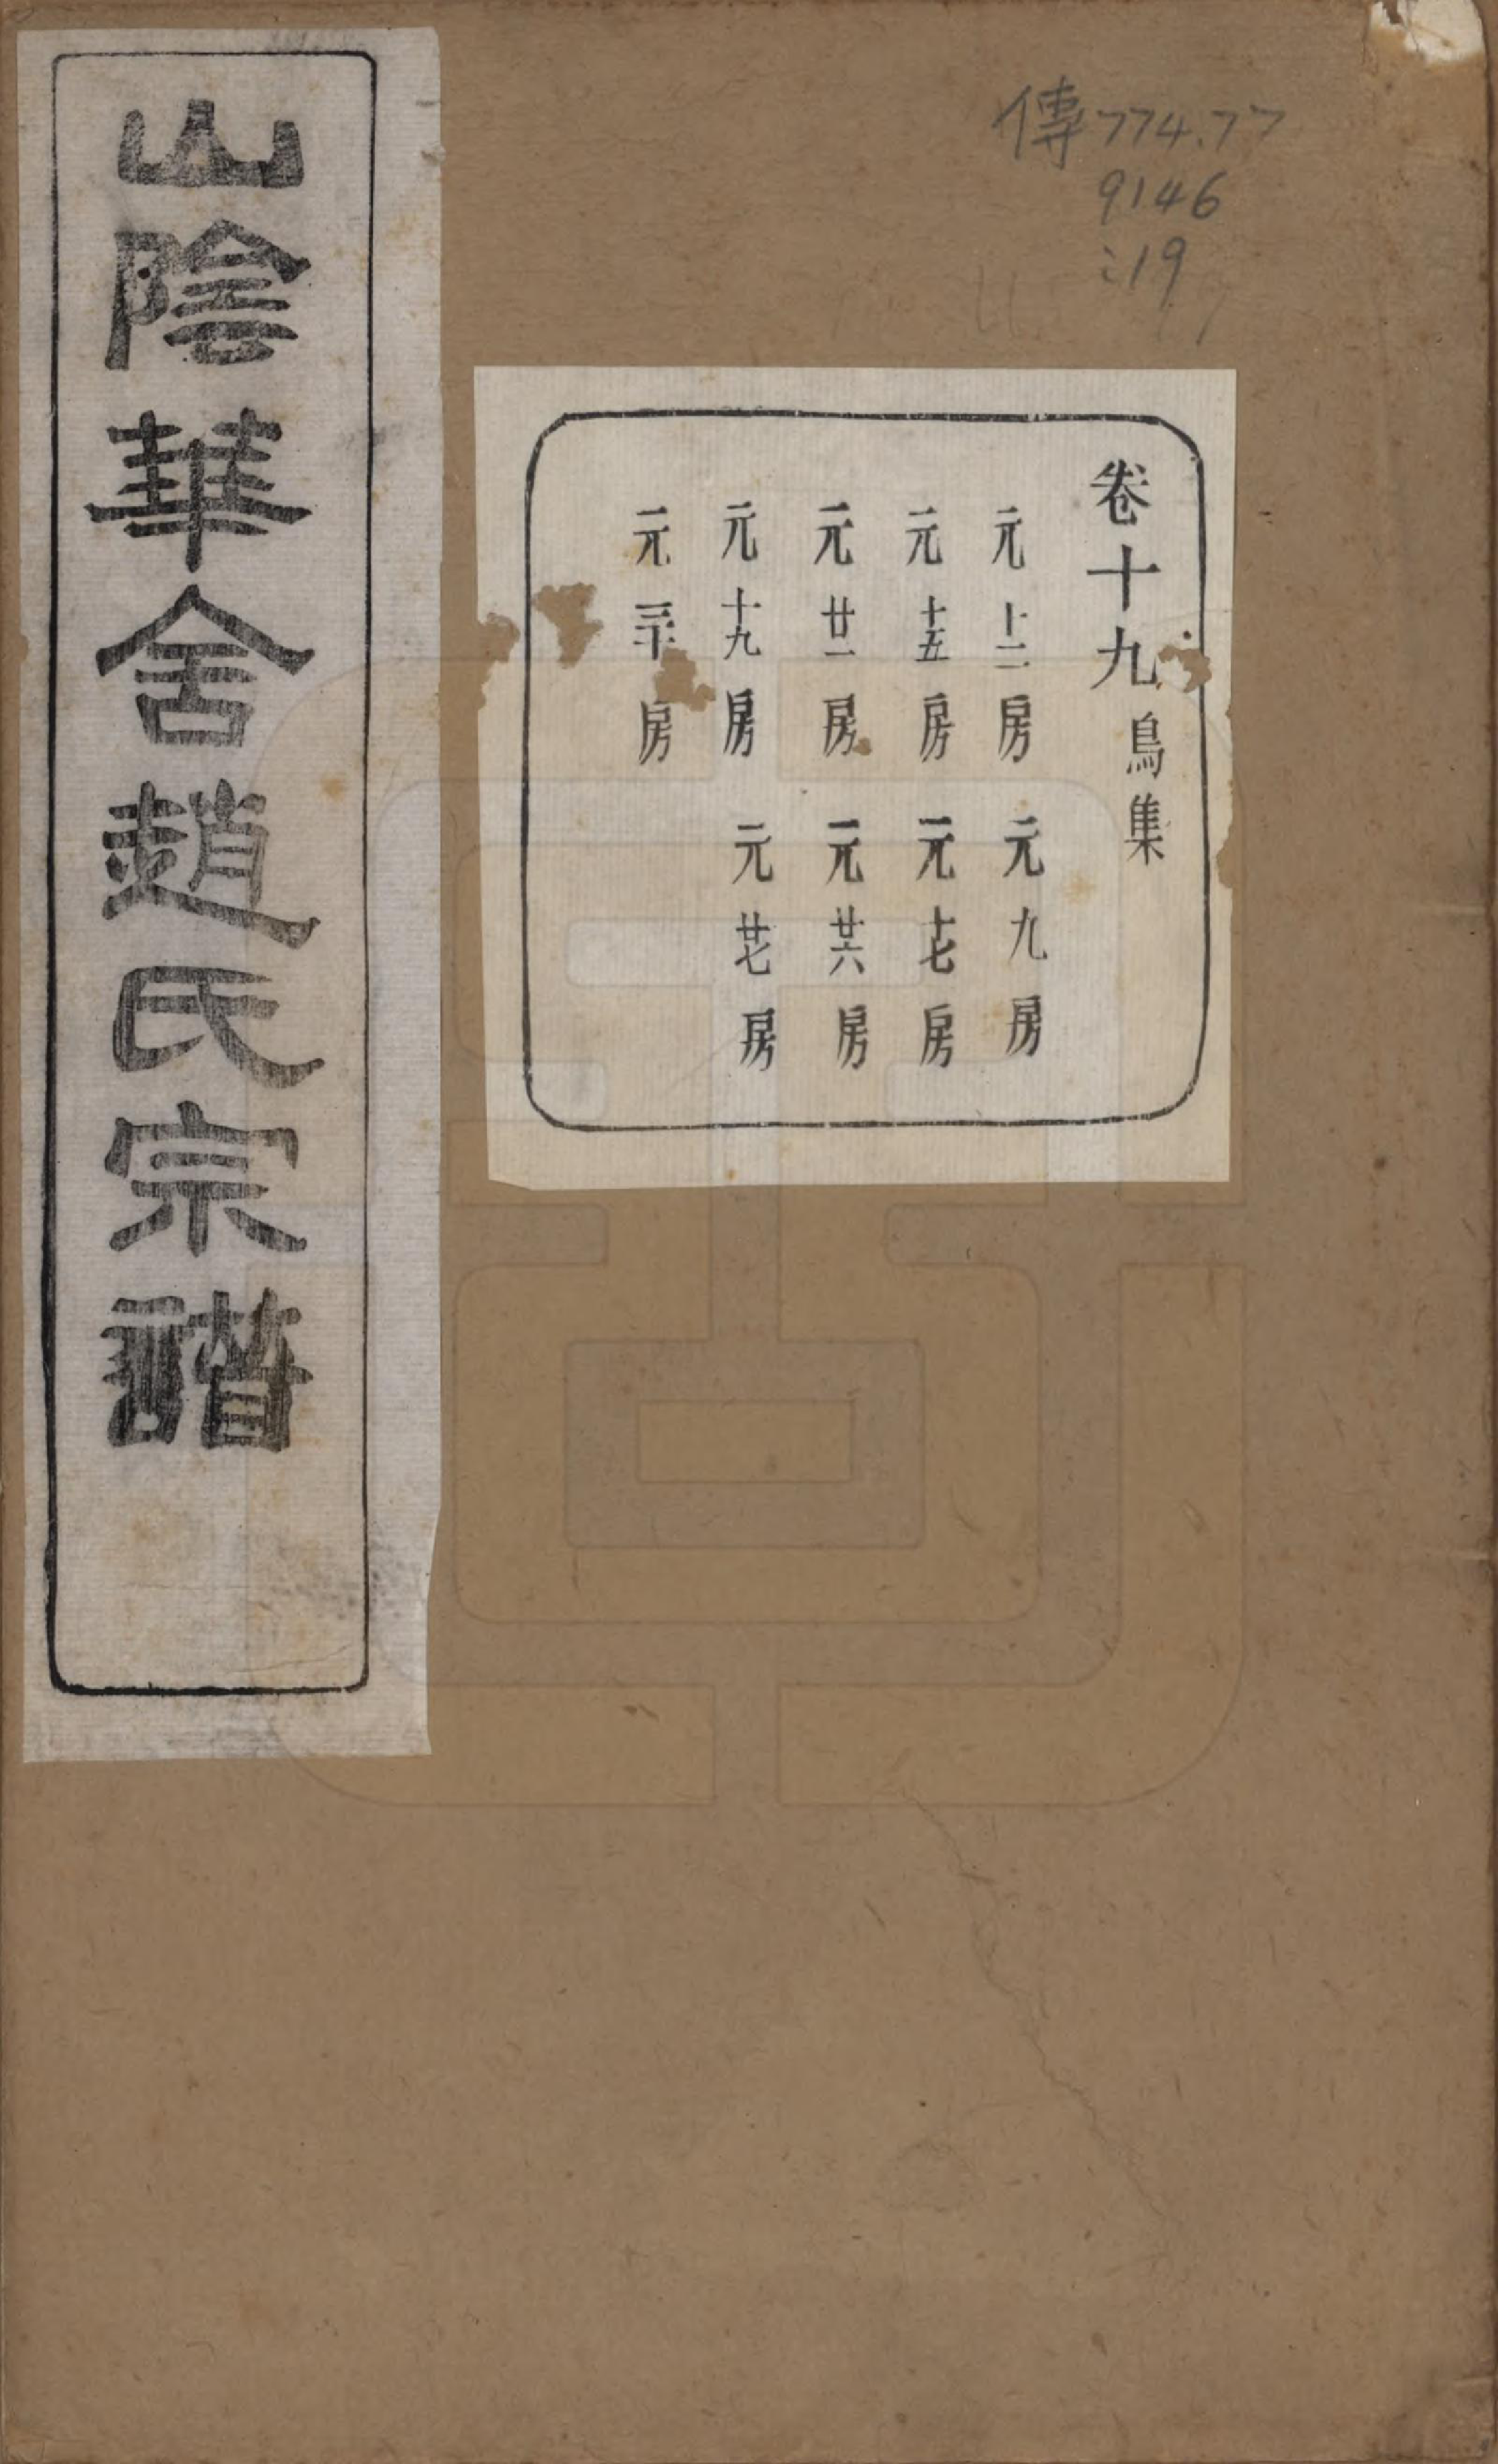 傳774.77
9146
:19
卷十九鳥集
元十二房 元九房
元十五房 元十七房
元廿一房 元廿六房
元十九房 元廿七房
元三十房
山陰華舍趙氏宗譜